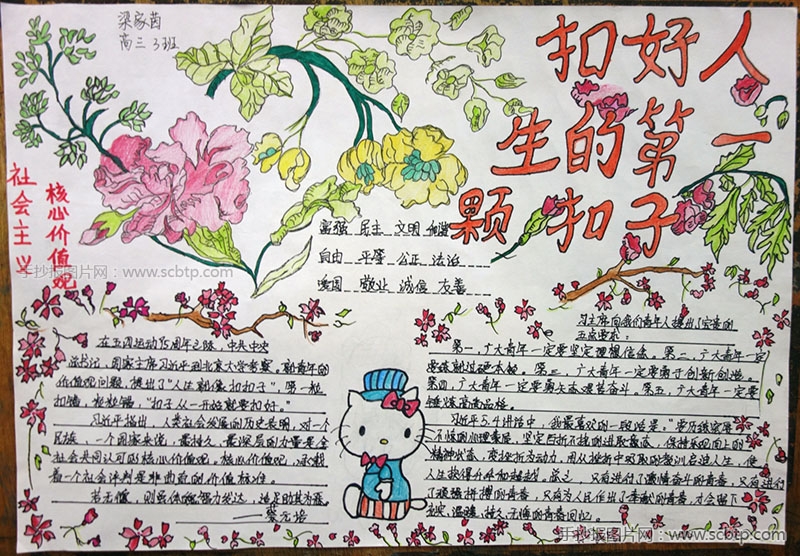 梁家茵
高三3班
扣好人
生的第一
颗扣子
社会主义
核心价值观
富强 民主 文明 和谐
自由 平等 公正 法治
爱国 敬业 诚信 友善
手抄报图片网：www.scbtp.com
手抄报图片网：www.scbtp.com
在五四运动95周年之际，中共中央
总书记，国家主席习近平到北京大学考察。就青年的
价值观问题，提出了“人生就像扣扣子”，第一粒
扣错，
“扣子从一开始就要扣好。”
习近平指出，人类社会发展的历史表明，对一个
民族、一个国家来说，最持久、最深层的力量是全
社会共同认可的核心价值观。核心价值观，承载
着一个社会评判是非曲直的价值标准。
若无德，则虽体魄智力发达，适足助其为恶
——蔡元培
习主席向我们青年人提出了宝贵的
五点要求：
第一，广大青年一定要坚定理想信念。第二，广大青年一定
要练就过硬本领。第三，广大青年一定要勇于创新创造。
第四，广大青年一定要矢志艰苦奋斗。第五，广大青年一定要
锤炼高尚品格。
习近平5.4讲话中，我最喜欢的一段话是：“要历练宠辱
不惊的心理素质，坚定百折不挠的进取意志，保持乐观向上的
精神状态，变挫折为动力，用从挫折中吸取的教训启迪人生，使
人生获得升华和超越。总之，只有进行了激情奋斗的青春，只有进行
了顽强拼搏的青春，只有为人民作出了奉献的青春，才会留下
充实、温暖、持久、无悔的青春回忆。
手抄报图片网：www.scbtp.com